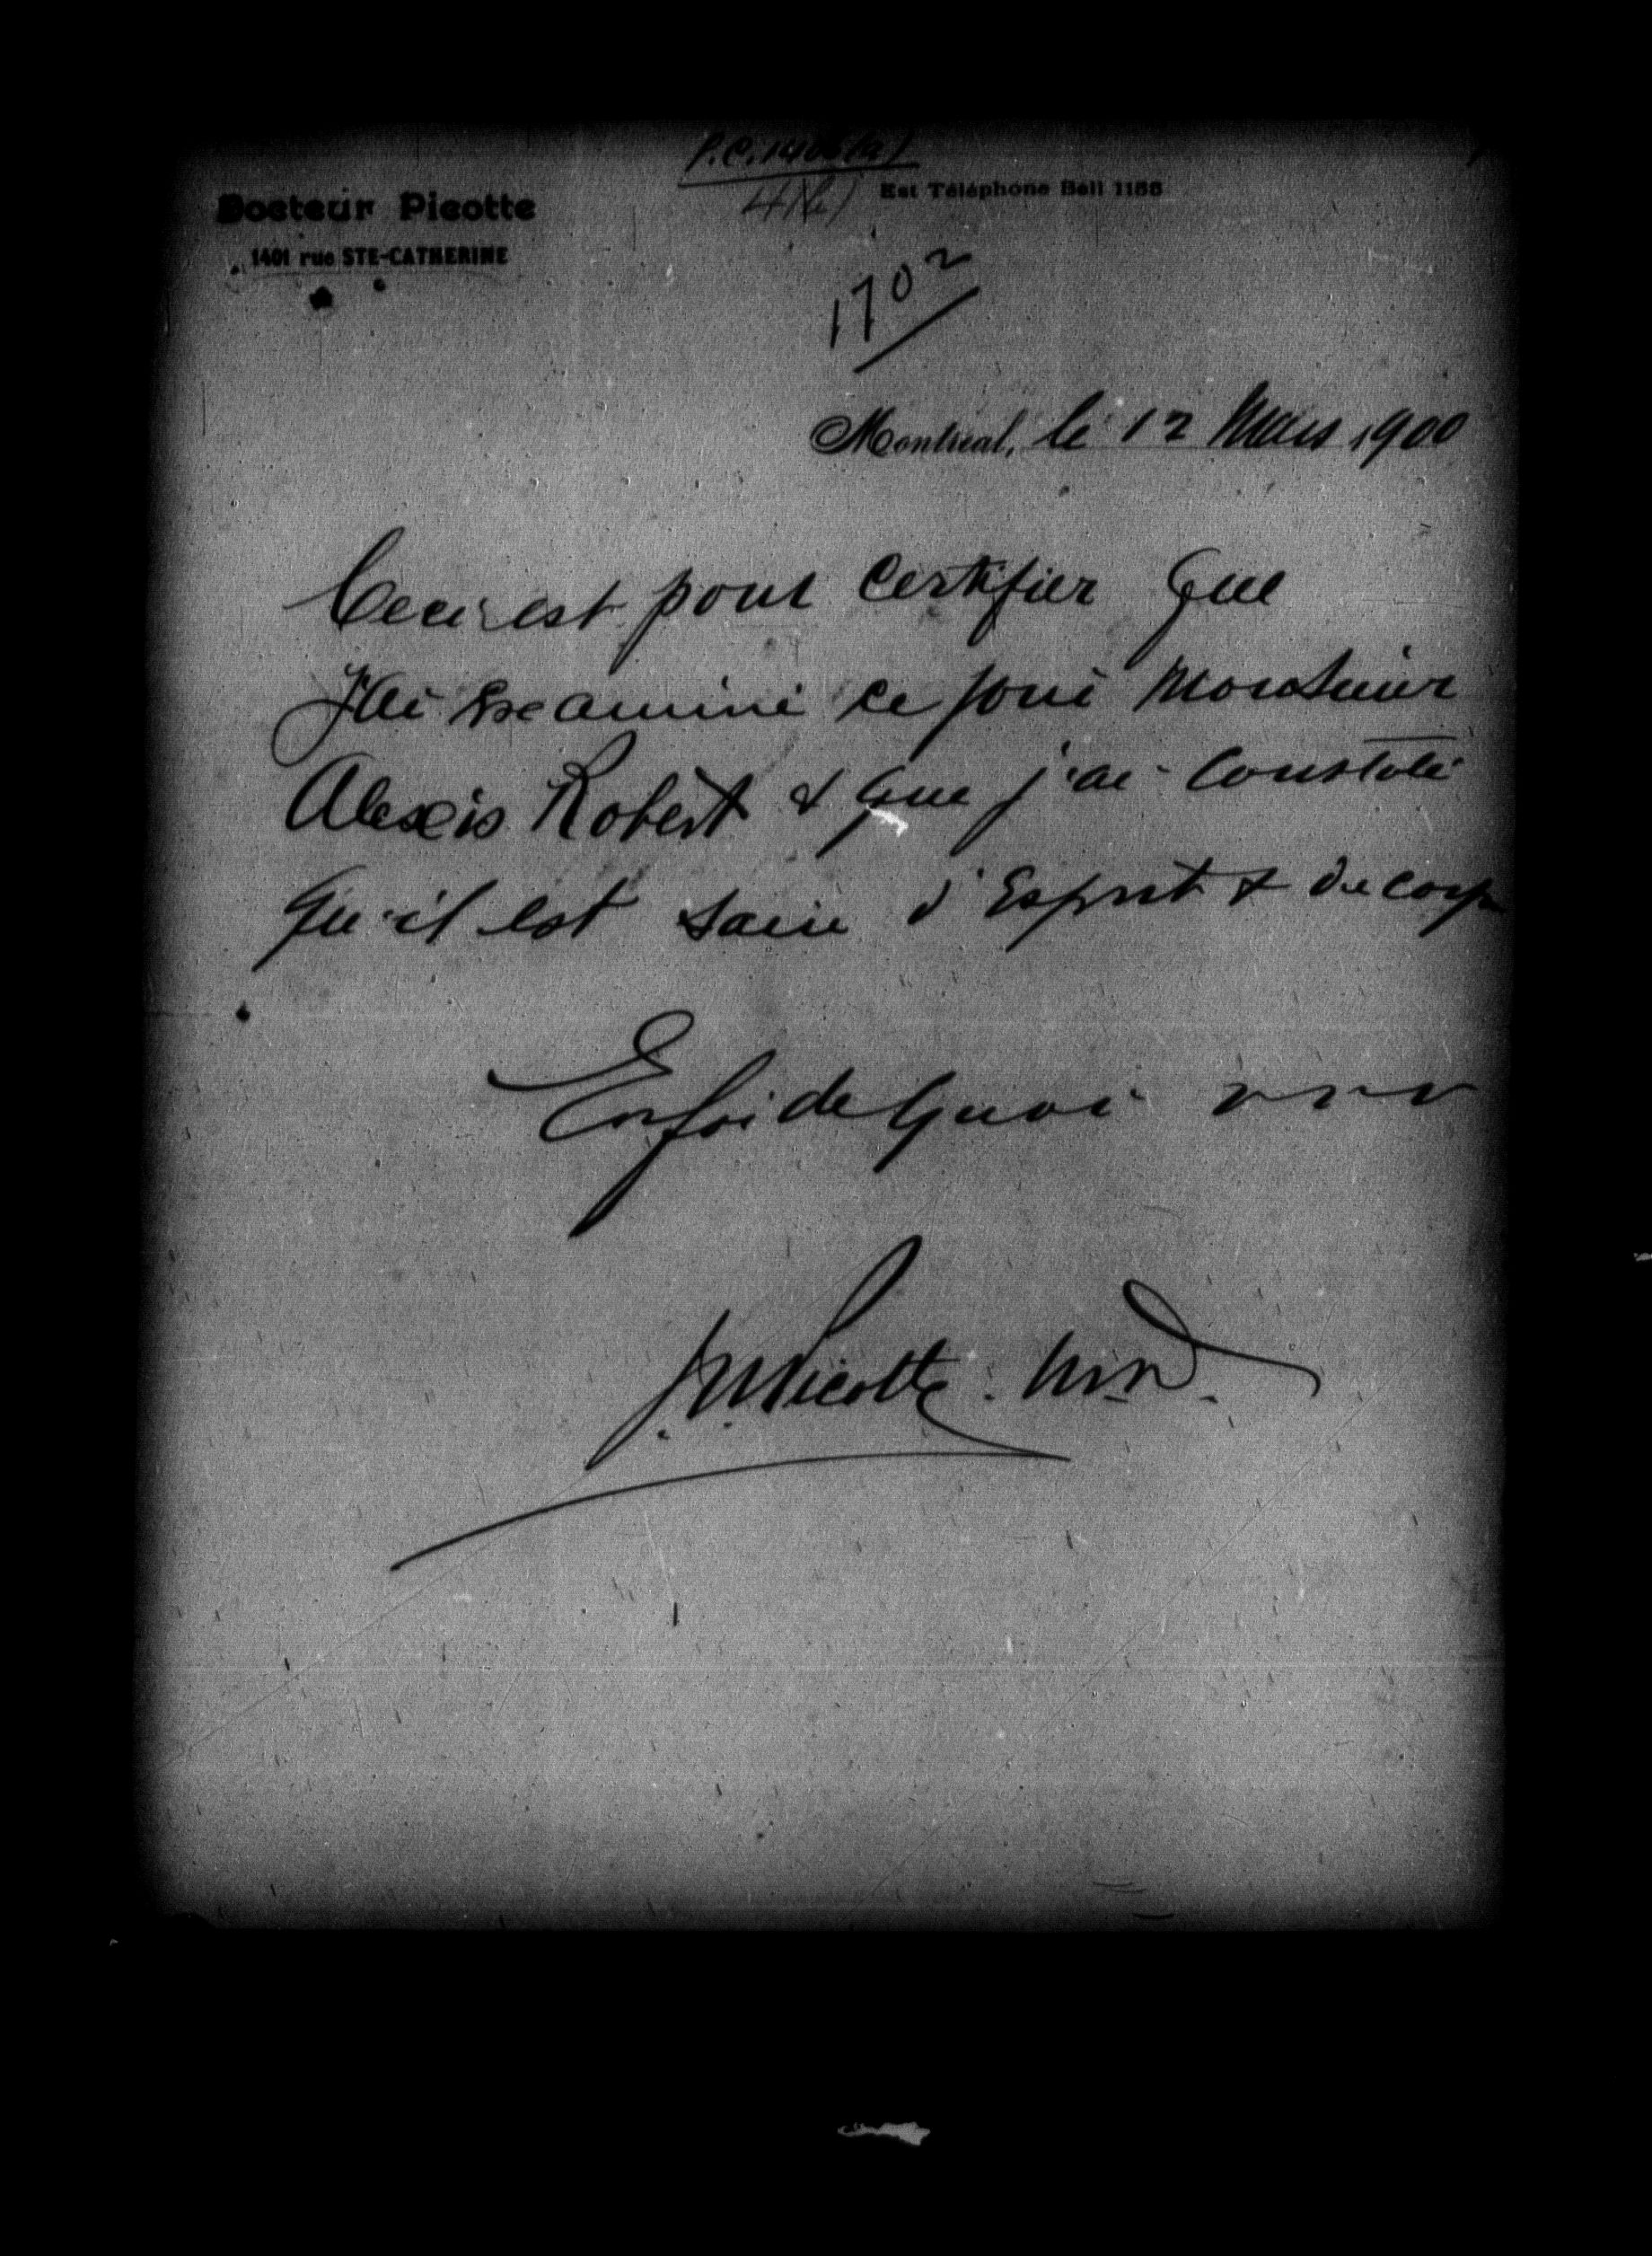 P.C. 1406(a)
Docteur Picotte
Est Téléphone Bell 1188
1401 rue STE-CATHERINE
1702
Montréal, le 12 Mars 1900
Ceci est pour Certifier Que
J'ai Examiné ce jour Monsieur
Alexis Robert & que j'ai Constaté
Qu'il est sain d'Esprit & de corps
En foi de Quoi
Picotte. M.D.